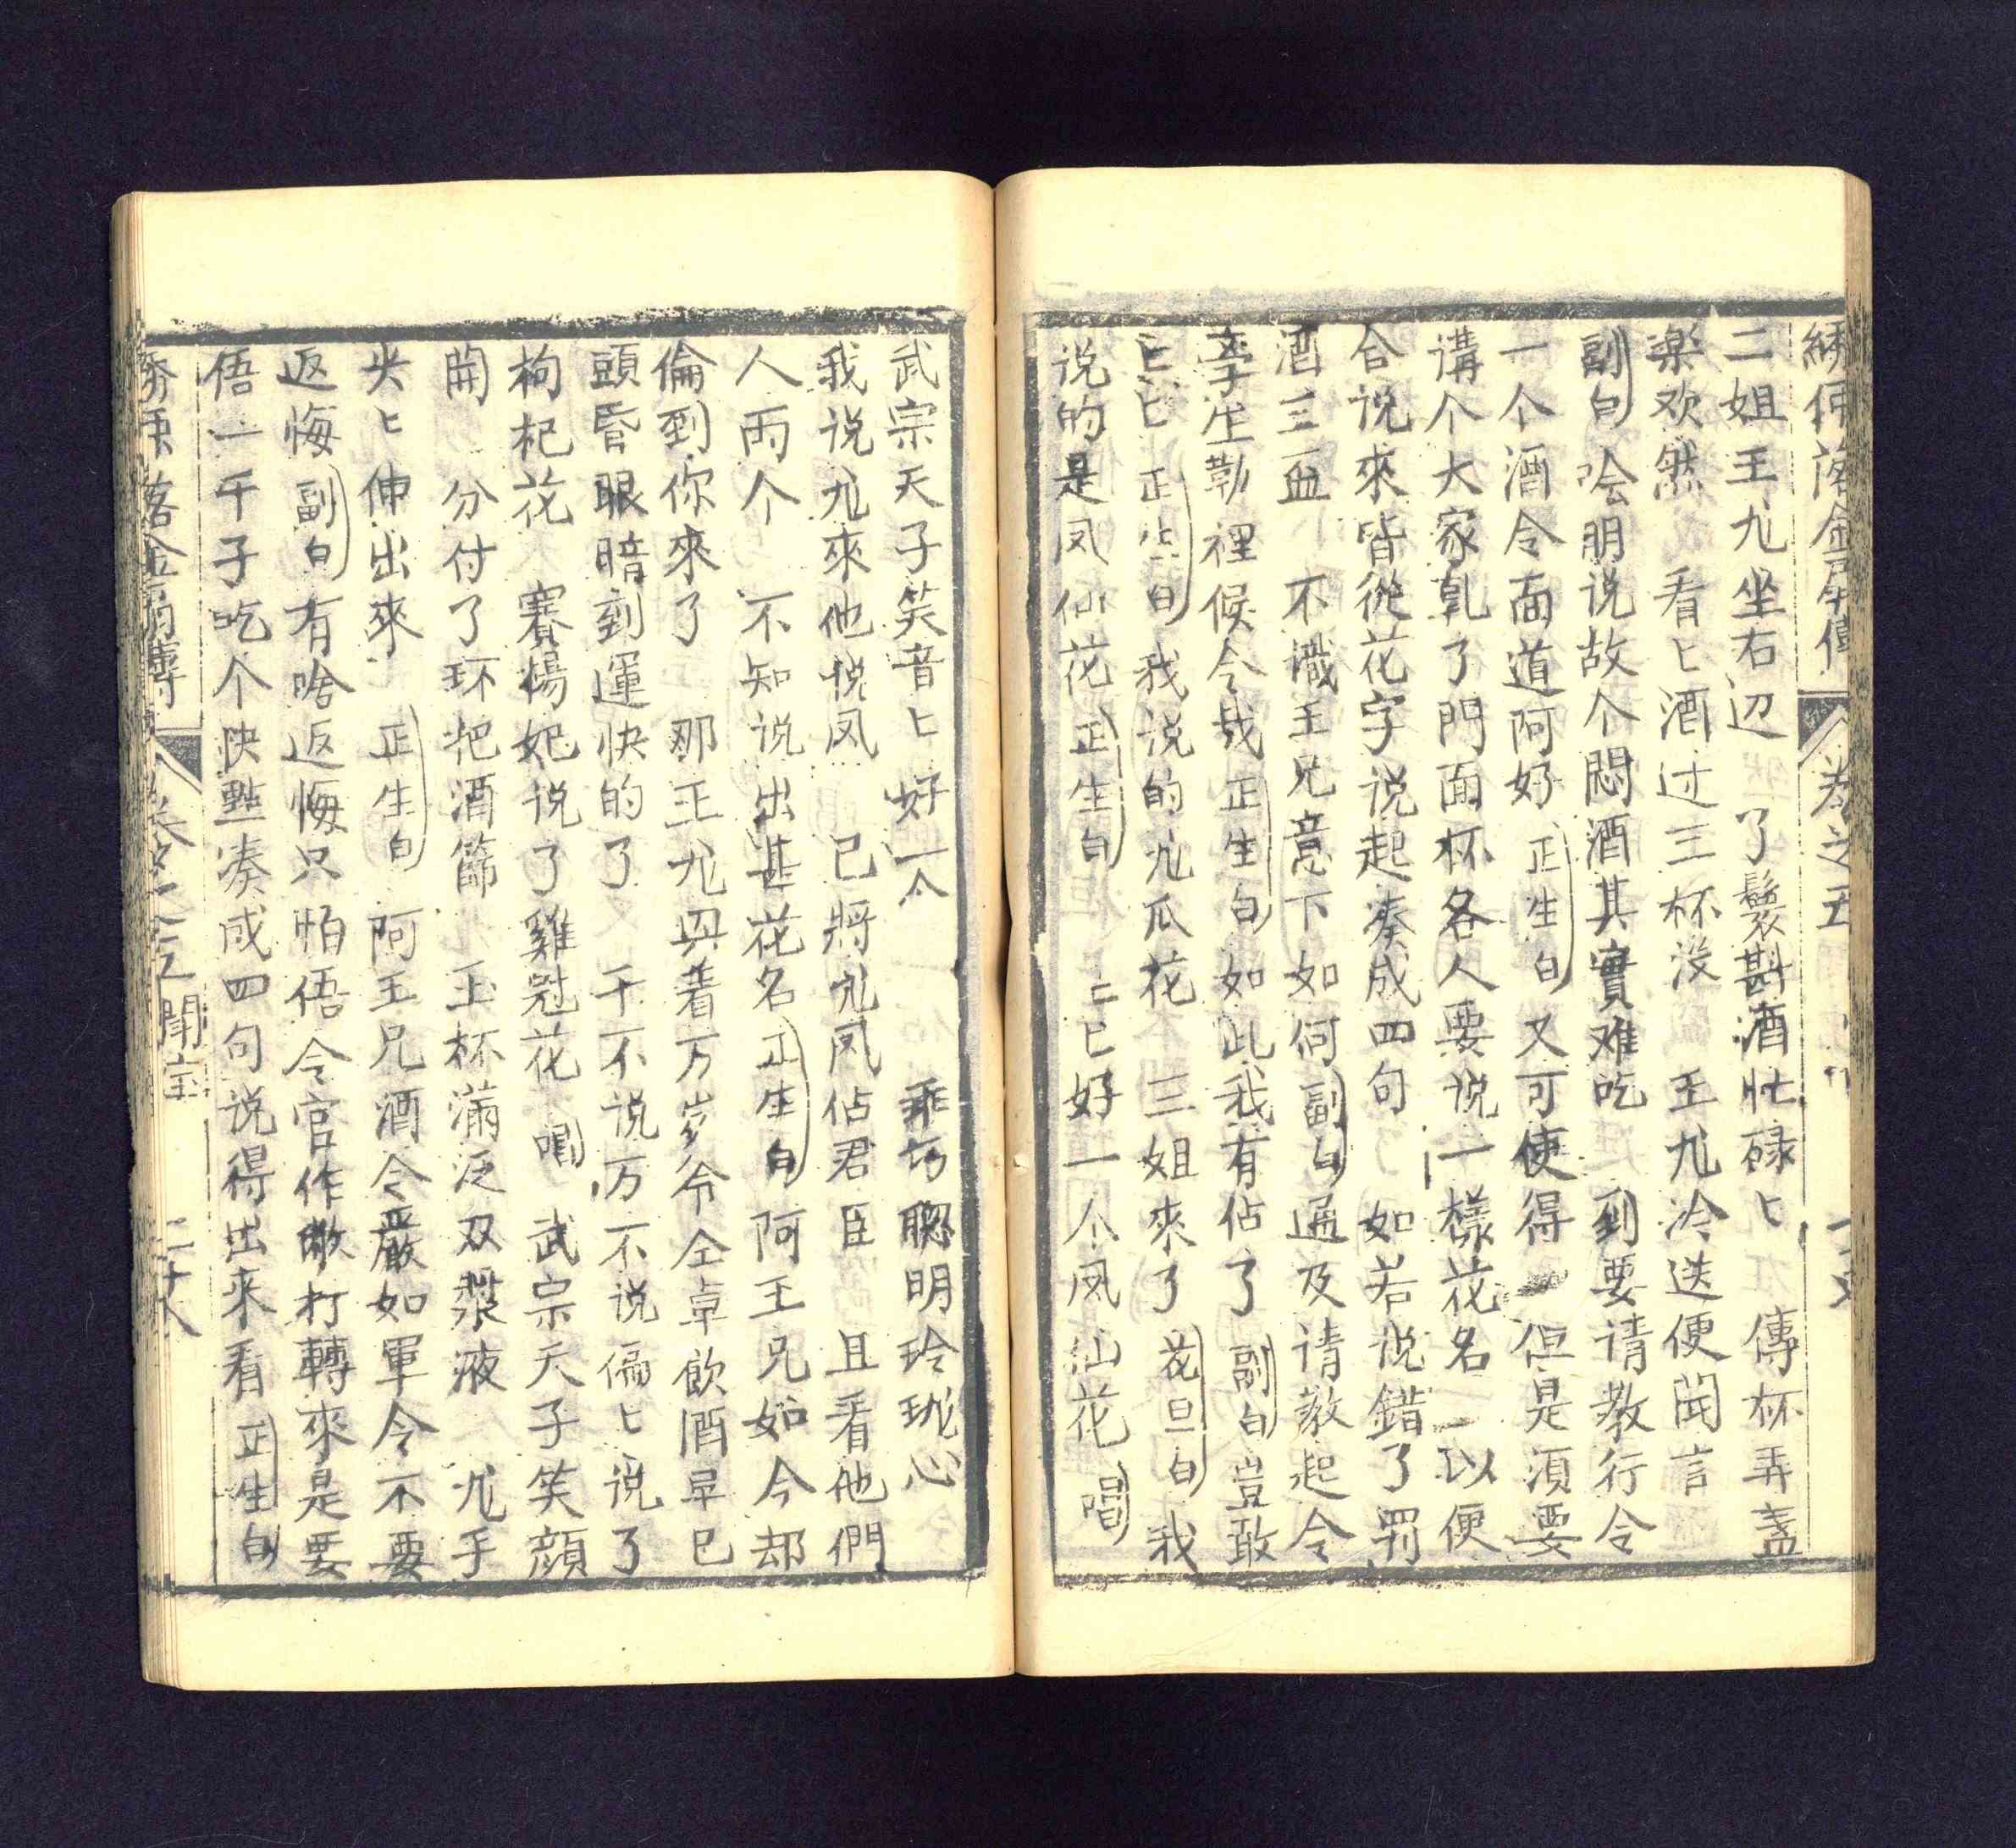 二姐王九坐右辺　了鬟斟酒忙碌〻　傳杯弄盞
楽欢然　看〻酒过三杯没　王九冷迭便開言
副白 哙朋说故个悶酒其實难吃　到要请教行令
一个酒令面道阿好 正生白 又可使得　但是湏要
講个大家乹了門面杯各人要说一樣花名　以便
合说來皆從花字说起凑成四句　如若说錯了罸
酒三盃　不識王兄意下如何 副白 通及请教起令
李生勒裡候令哉 正生白 如此我有佔了 副白 豈敢
〻〻 正生白 我说的九瓜花　三姐來了 花旦白 我
说的是凤仙花 正生白 〻〻好一个凤仙花 唱
武宗天子笑音〻　好一个　乖巧聰明玲珑心
我说九來他说凤　已將九凤佔君臣　且看他們
人両个　不知说出甚花名 正生白 阿王兄如今却
倫到你來了　那王九與着万岁令仝桌飲酒早已
頭昏眼暗到運快的了　千不说万不说偏〻说了
枸杞花　賽楊妃说了雞冠花 唱 武宗天子笑顔
開　分付了环把酒篩　玉杯滿泛双漿液　九手
尖〻伸出來 正生白 阿王兄酒令嚴如軍令不要
返悔 副白 有啥返悔只怕俉令官作敝打轉來是要
俉一干子吃个快㸃凑成四句说得出来看 正生白
落金扇傳　卷之五　聞宝　二十八